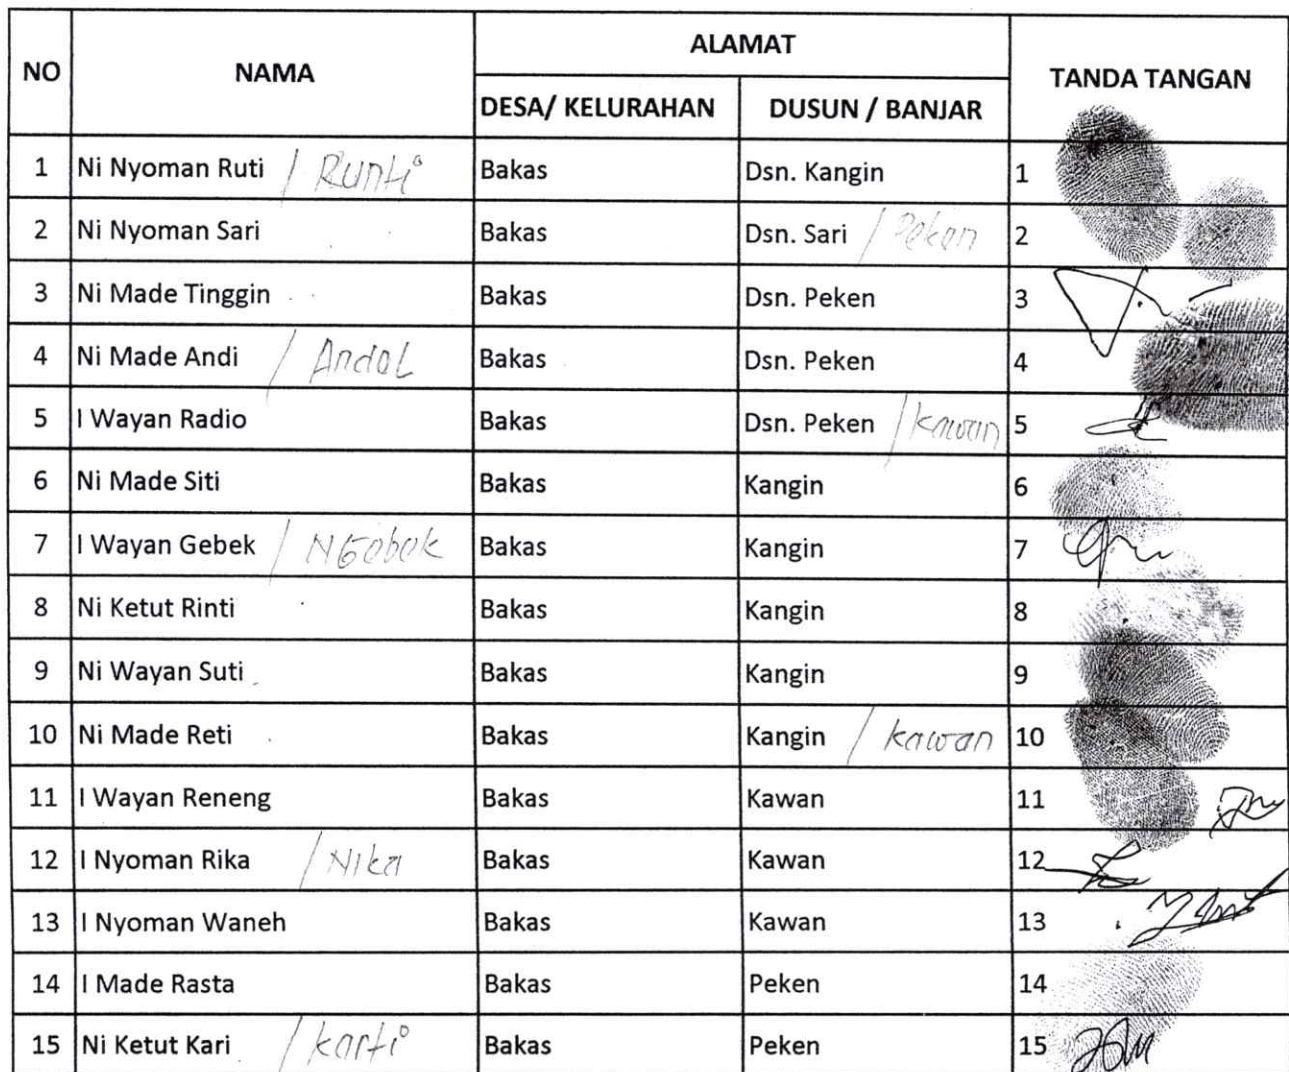 NO NAMA ALAMAT TANDA TANGAN
DESA/ KELURAHAN DUSUN / BANJAR
1 Ni Nyoman Ruti / Runti Bakas Dsn. Kangin 1
2 Ni Nyoman Sari Bakas Dsn. Sari / Peken 2
3 Ni Made Tinggin Bakas Dsn. Peken 3
4 Ni Made Andi / Andol Bakas Dsn. Peken 4
5 I Wayan Radio Bakas Dsn. Peken / kawan 5
6 Ni Made Siti Bakas Kangin 6
7 I Wayan Gebek / NGebek Bakas Kangin 7
8 Ni Ketut Rinti Bakas Kangin 8
9 Ni Wayan Suti Bakas Kangin 9
10 Ni Made Reti Bakas Kangin / kawan 10
11 I Wayan Reneng Bakas Kawan 11
12 I Nyoman Rika / Nika Bakas Kawan 12
13 I Nyoman Waneh Bakas Kawan 13
14 I Made Rasta Bakas Peken 14
15 Ni Ketut Kari / karti Bakas Peken 15